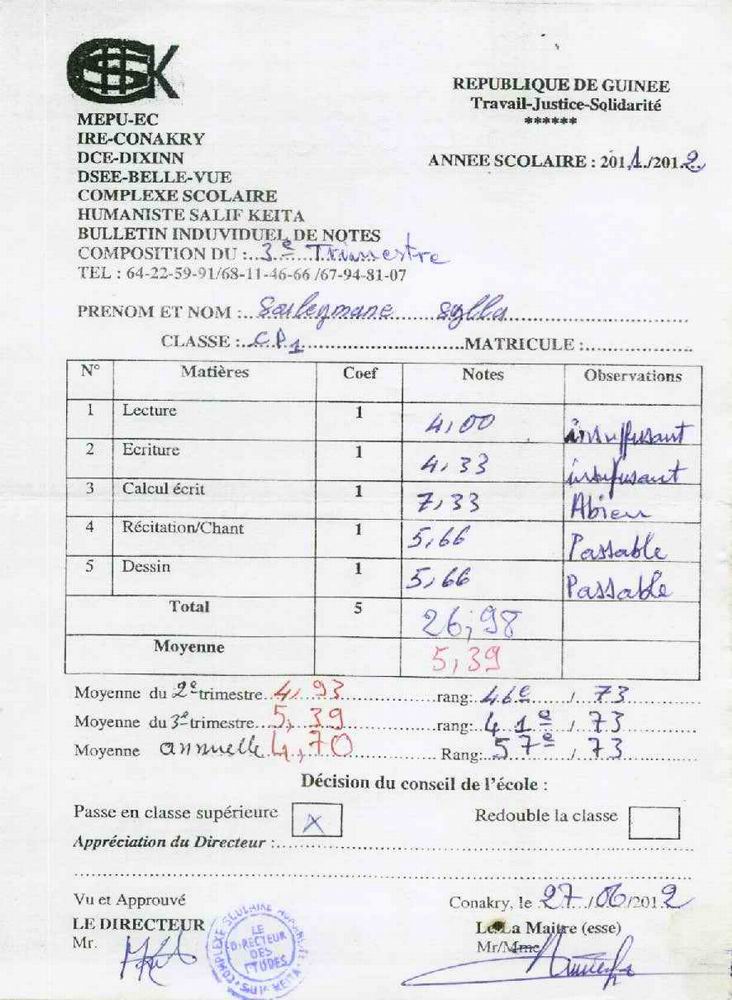 REPUBLIQUE DE GUINEE
Travail-Justice-Solidarité
******
MEPU-EC
IRE-CONAKRY
DCE-DIXINN
DSEE-BELLE-VUE
COMPLEXE SCOLAIRE
HUMANISTE SALIF KEITA
BULLETIN INDUVIDUEL DE NOTES
ANNEE SCOLAIRE : 2011./2012
COMPOSITION DU :..3e Trimestre
TEL : 64-22-59-91/68-11-46-66 /67-94-81-07
PRENOM ET NOM :.. Souleymane Sylla
CLASSE :..CP1..........MATRICULE :..........
N° Matières Coef Notes Observations
1 Lecture 1 4,00 insuffisant
2 Ecriture 1 4,33 insufisant
3 Calcul écrit 1 7,33 Abien
4 Récitation/Chant 1 5,66 Passable
5 Dessin 1 5,66 Passable
Total 5 26,98
Moyenne 5,39
Moyenne du 2e trimestre 4,93..........rang: 46e / 73
Moyenne du 3e trimestre 5,39..........rang: 41e / 73
Moyenne annuelle 4,70..........Rang: 57e / 73
Décision du conseil de l'école :
Passe en classe supérieure X Redouble la classe
Appréciation du Directeur :..........
Vu et Approuvé Conakry, le 27/06/2012
LE DIRECTEUR Le/La Maitre (esse)
Mr. Mr/Mme
COMPLEXE SCOLAIRE
LE
DIRECTEUR
DES
ETUDES